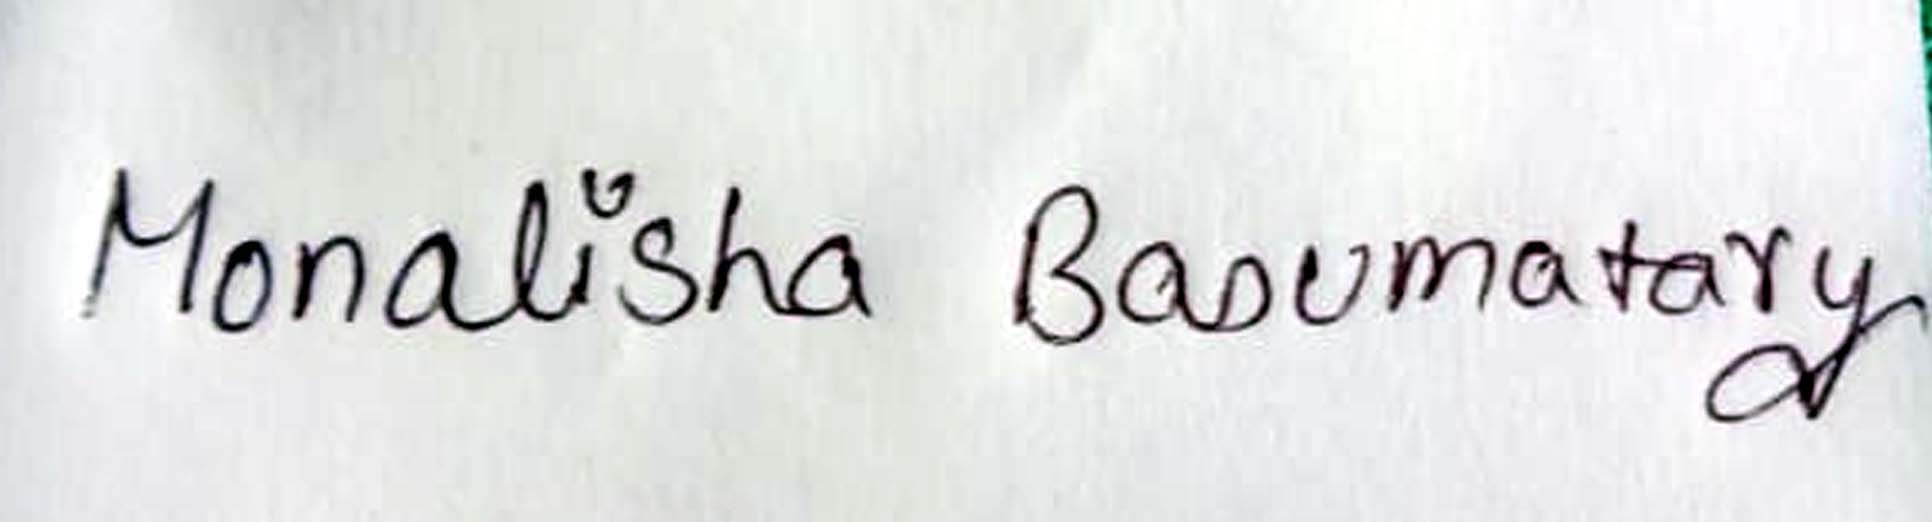 Monalisha Basumatary